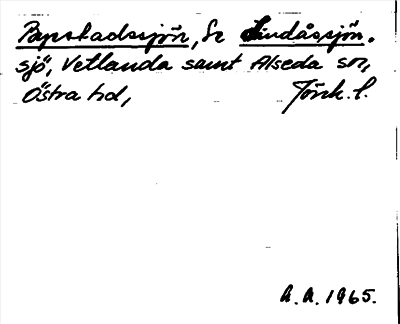 Byestadssjön, Se Lindåssjön.
sjö, Vetlanda samt Alseda sn,
Östra hd, Jönk. l.
A. A. 1965.